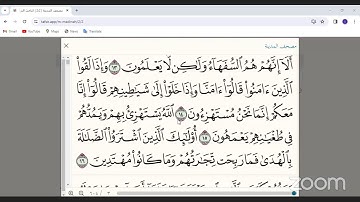 مصحف المدينة
أَلَآ إِنَّهُمْ هُمُ ٱلسُّفَهَآءُ وَلَٰكِن لَّا يَعْلَمُونَ ١٣ وَإِذَا لَقُوا۟
ٱلَّذِينَ ءَامَنُوا۟ قَالُوٓا۟ ءَامَنَّا وَإِذَا خَلَوْا۟ إِلَىٰ شَيَٰطِينِهِمْ قَالُوٓا۟ إِنَّا
مَعَكُمْ إِنَّمَا نَحْنُ مُسْتَهْزِءُونَ ١٤ ٱللَّهُ يَسْتَهْزِئُ بِهِمْ وَيَمُدُّهُمْ
فِى طُغْيَٰنِهِمْ يَعْمَهُونَ ١٥ أُو۟لَٰٓئِكَ ٱلَّذِينَ ٱشْتَرَوُا۟ ٱلضَّلَٰلَةَ
بِٱلْهُدَىٰ فَمَا رَبِحَت تِّجَٰرَتُهُمْ وَمَا كَانُوا۟ مُهْتَدِينَ ١٦
zoom